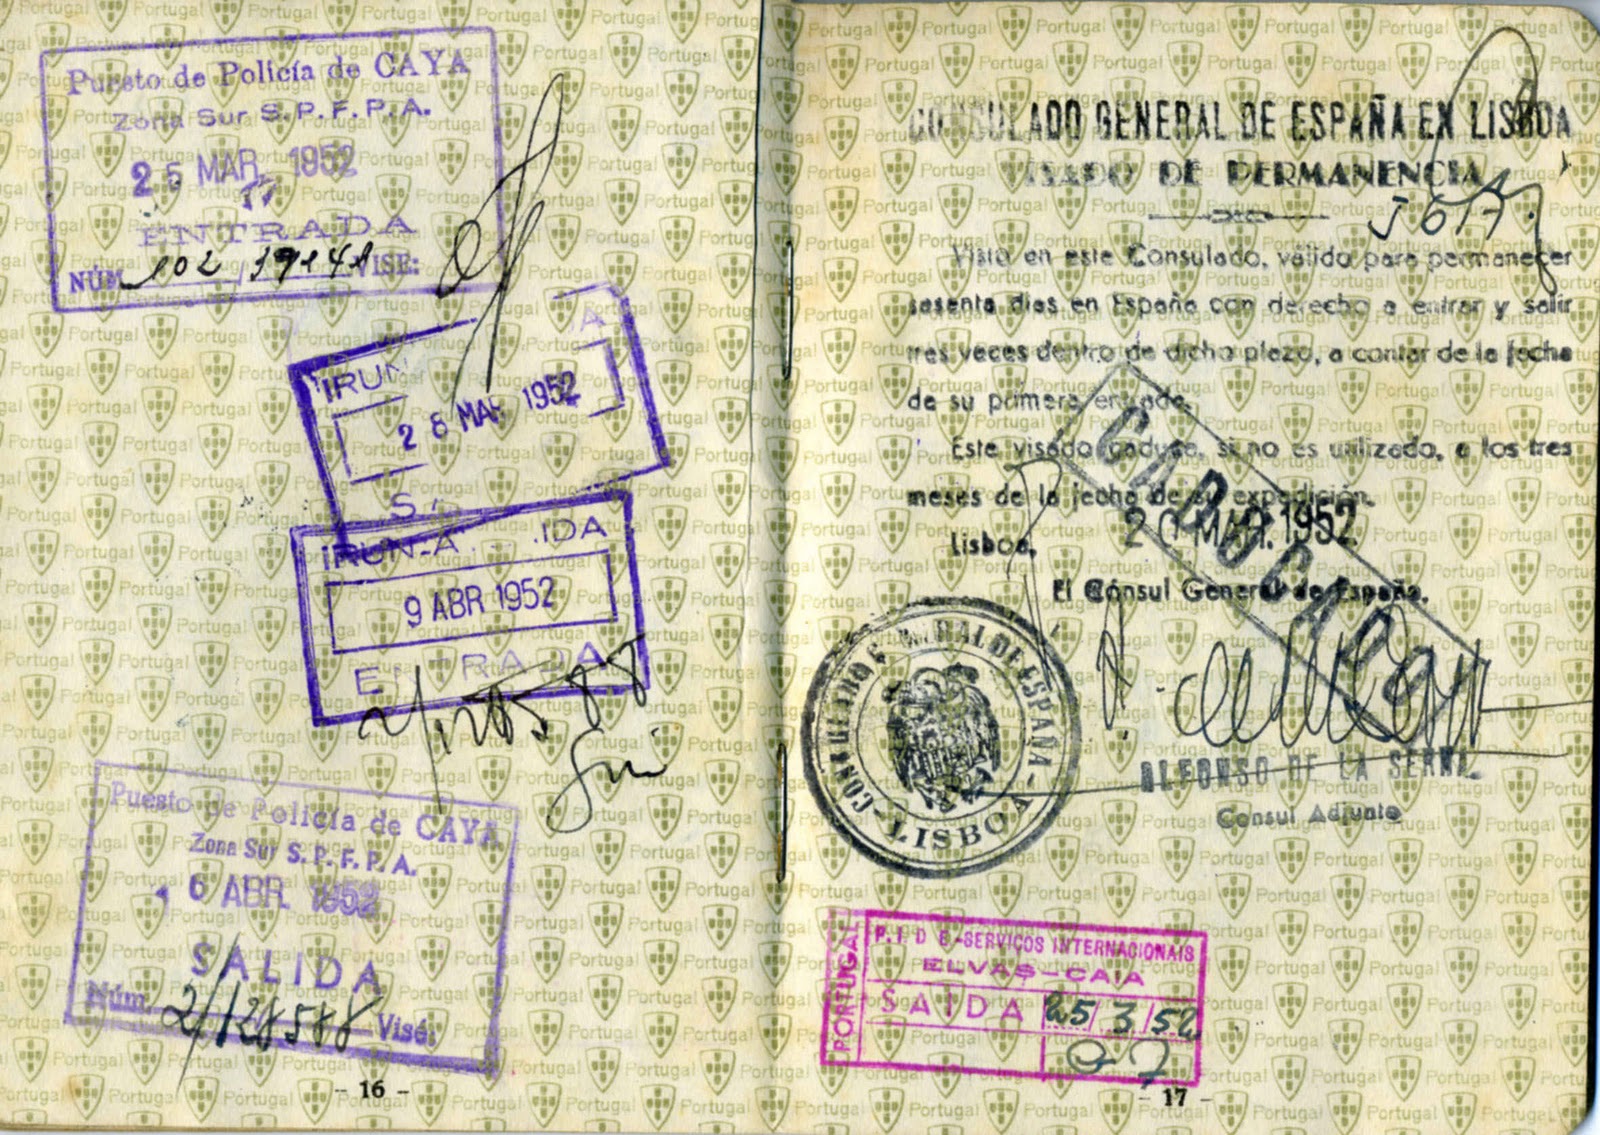 Puesto de Policía de CAYA
Zona Sur S. P. F. P. A.
25 MAR. 1952
ENTRADA
NÚM. 102 / 19148 VISE:
IRUN
28 MAR 1952
IRUN-A IDA
9 ABR 1952
E RADA
Puesto de Policía de CAYA
Zona Sur S. P. F. P. A.
16 ABR. 1952
SALIDA
Núm. 2/128588 Visé:
- 16 -
CONSULADO GENERAL DE ESPAÑA EN LISBOA
ISADO DE PERMANENCIA
Visto en este Consulado, válido para permanecer
sesenta días en España con derecho a entrar y salir
tres veces dentro de dicho plazo, a contar de la fecha
de su primera entrada.
Este visado caduca, si no es utilizado, a los tres
meses de la fecha de su expedición.
Lisboa, 20 MAR. 1952
CADUCADO
El Cónsul General de España,
CONSULADO GENERAL DE ESPAÑA
- LISBOA
ALFONSO DE LA SERNA
Consul Adjunto
PORTUGAL
P. I D E - SERVIÇOS INTERNACIONAIS
ELVAS - CAIA
SAIDA 25/3/52
- 17 -